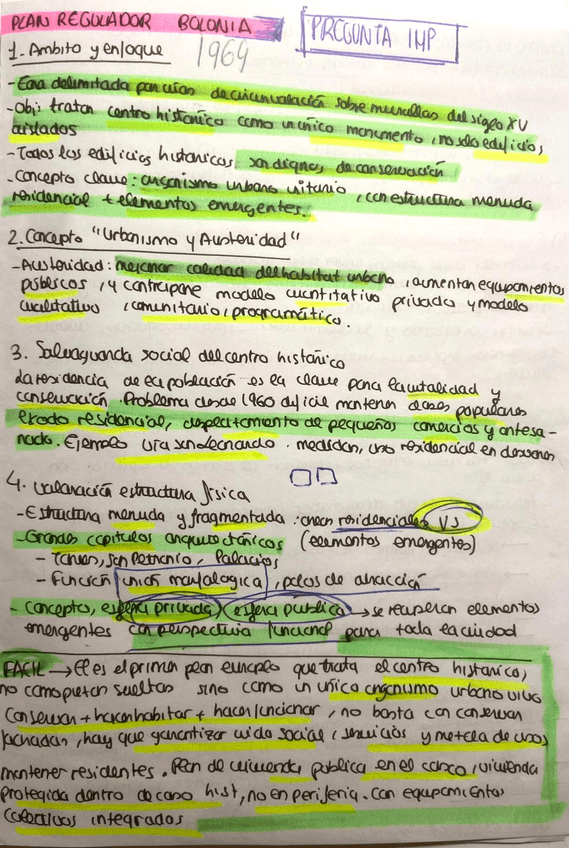 PLAN REGULADOR BOLONIA
PREGUNTA IMP
1. Ambito y enfoque 1969
- Era delimitada por vías de circunvalación sobre murallas del siglo XV
- Obj: tratar centro histórico como un único monumento, no solo edificios
aislados
- Todos los edificios historicos son dignos de conservación
- Concepto clave: organismo urbano unitario, con estructura menuda
residencial + elementos emergentes.
2. Concepto "Urbanismo y Austeridad"
- Austeridad: mejorar calidad del habitat urbano, aumentar equipamientos
públicos, y contrapone modelo cuantitativo privado y modelo
cualitativo, comunitario, programático.
3. Salvaguarda social del centro histórico
La residencia de la población es la clave para la vitalidad y
conservación. Problema desde 1960 dificil mantener clases populares
exodo residencial, desplazamiento de pequeños comercios y artesa-
nado. Ejemplo vía medidas, uso residencial en
4. Valoración estructura física
- Estructura menuda y fragmentada: áreas residenciales VS
- Grandes capitulos arquitectónicos (elementos emergentes)
- Torres, San Petronio, Palacios
- Función unión morfologica, polos de atracción
- Conceptos, esfera privada / esfera pública → se recuperan elementos
emergentes con perspectiva funcional para toda la ciudad
FACIL → El es el primer plan europeo que trata el centro historico,
no como piezas sueltas sino como un único organismo urbano vivo
Conservar + hacer habitar + hacer funcionar, no basta con conservar
fachadas, hay que garantizar vida social (servicios y mezcla de usos)
mantener residentes. Plan de vivienda pública en el casco, vivienda
protegida dentro de casco hist, no en periferia. Con equipamientos
colectivos integrados